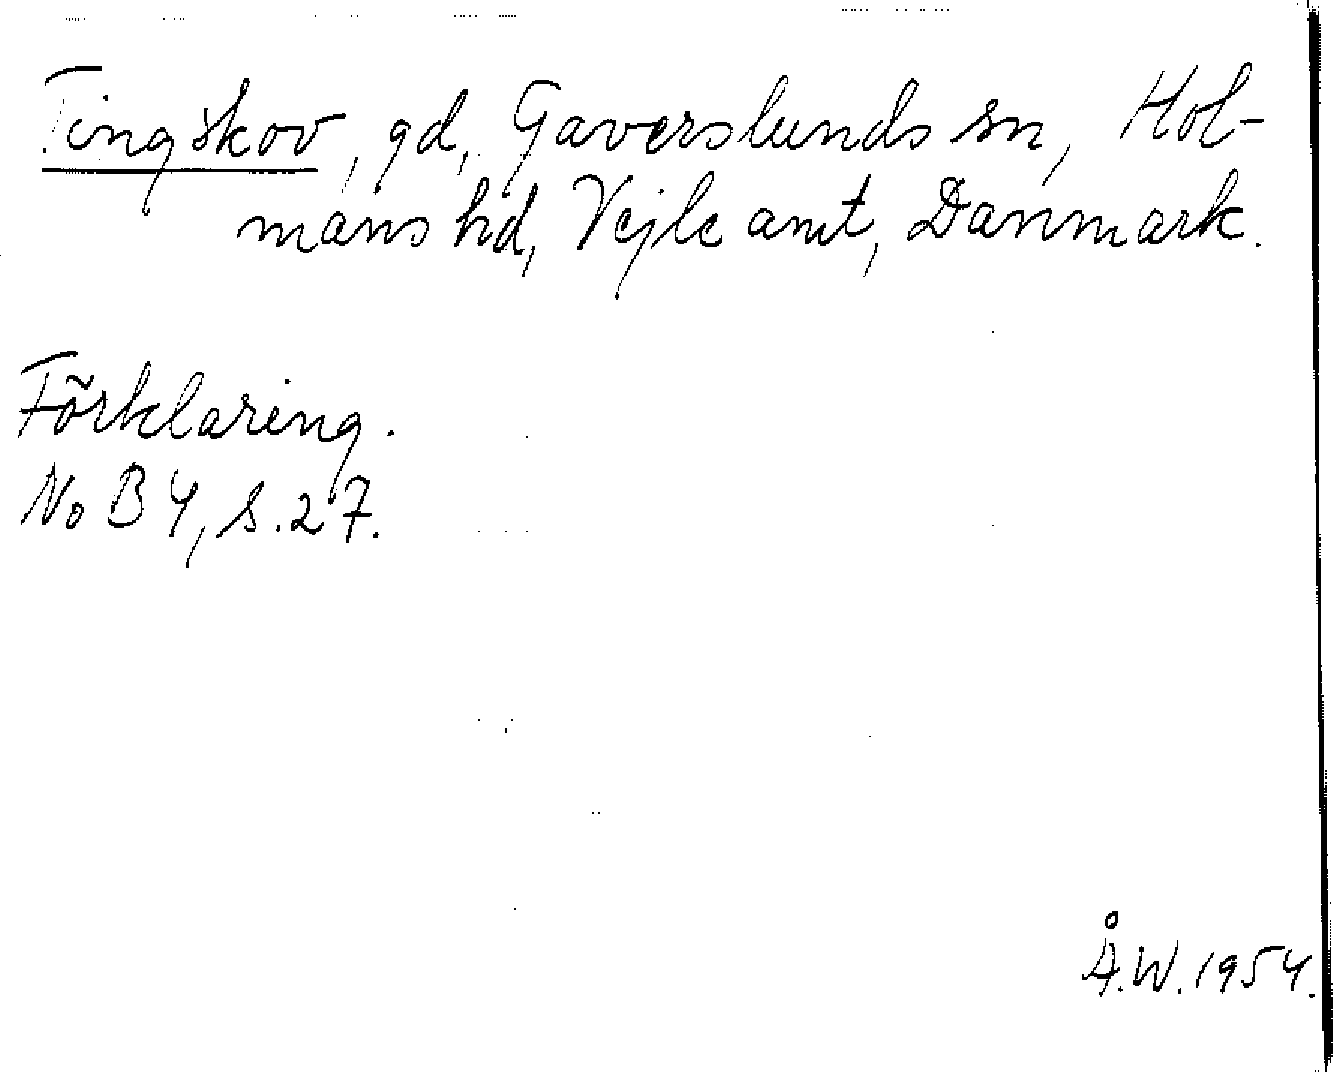 Tingskov, gd, Gaverslunds sn, Hol-
mans hd, Vejle amt, Danmark.
Förklaring.
No B 4, s. 27.
Å.W. 1954.